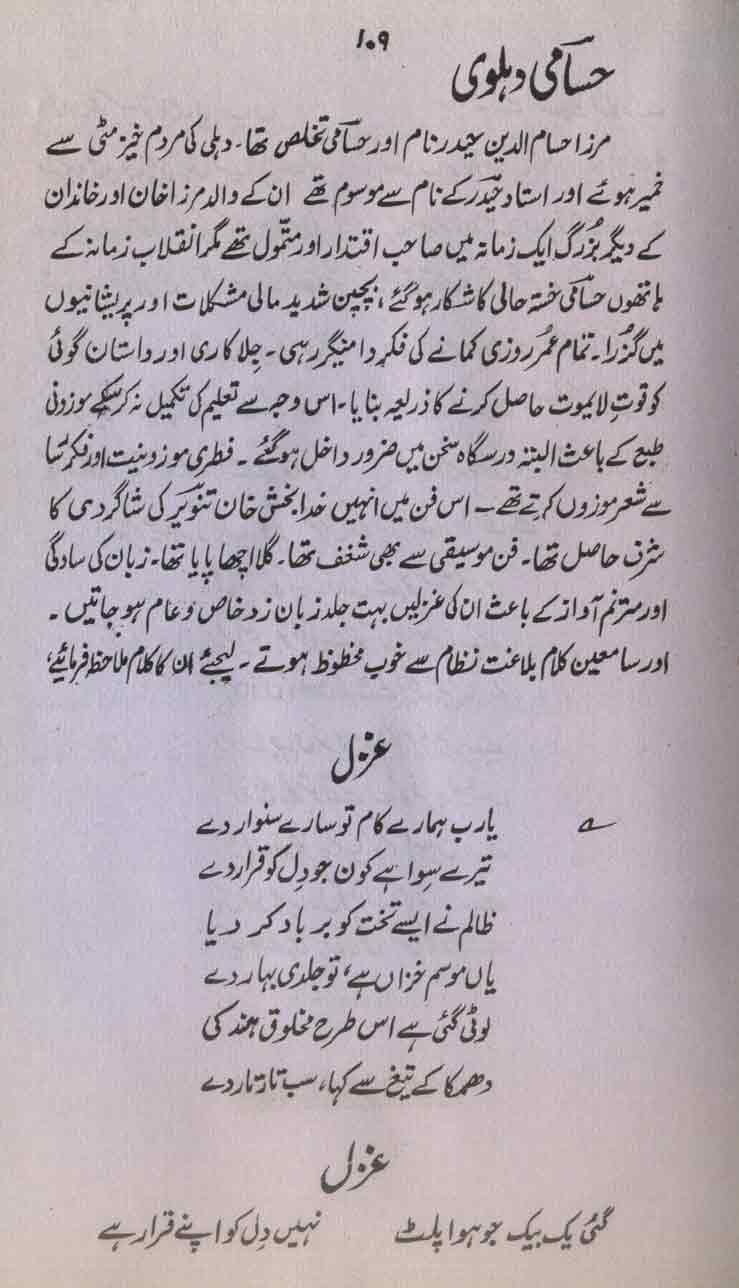 ۱۰۹
حسامی دہلوی
مرزا حسام الدین حیدر نام اور حسامی تخلص تھا۔ دہلی کی مردم خیز مٹی سے
خمیر ہوئے اور استاد حیدر کے نام سے موسوم تھے ان کے والد مرزا خان اور خاندان
کے دیگر بزرگ ایک زمانہ میں صاحب اقتدار اور متموّل تھے مگر انقلاب زمانہ کے
ہاتھوں حسامی خستہ حالی کا شکار ہو گئے، بچپن شدید مالی مشکلات اور پریشانیوں
میں گزرا۔ تمام عمر روزی کمانے کی فکر دامنگیر رہی۔ جلا کاری اور داستان گوئی
کو قوتِ لایموت حاصل کرنے کا ذریعہ بنایا۔ اس وجہ سے تعلیم کی تکمیل نہ کر سکے موزونی
طبع کے باعث البتہ درسگاہ سخن میں ضرور داخل ہو گئے۔ فطری موزونیت اور فکر رسا
سے شعر موزوں کرتے تھے۔ اس فن میں انہیں خدا بخش خان تنویر کی شاگردی کا
شرف حاصل تھا۔ فن موسیقی سے بھی شغف تھا۔ گلا اچھا پایا تھا۔ زبان کی سادگی
اور مترنم آواز کے باعث ان کی غزلیں بہت جلد زبان زد خاص و عام ہو جاتیں۔
اور سامعین کلام بلاغت نظام سے خوب محظوظ ہوتے۔ لیجئے ان کا کلام ملاحظہ فرمائیے،
غزل
یارب ہمارے کام تو سارے سنوار دے
تیرے سِوا ہے کون جو دِل کو قرار دے
ظالم نے ایسے تخت کو برباد کر دیا
یاں موسم خزاں ہے، تو جلدی بہار دے
لوٹی گئی ہے اس طرح مخلوق ہند کی
دھمکا کے تیغ سے کہا، سب تار تار دے
غزل
گئی یک بیک جو ہوا پلٹ نہیں دِل کو اپنے قرار ہے